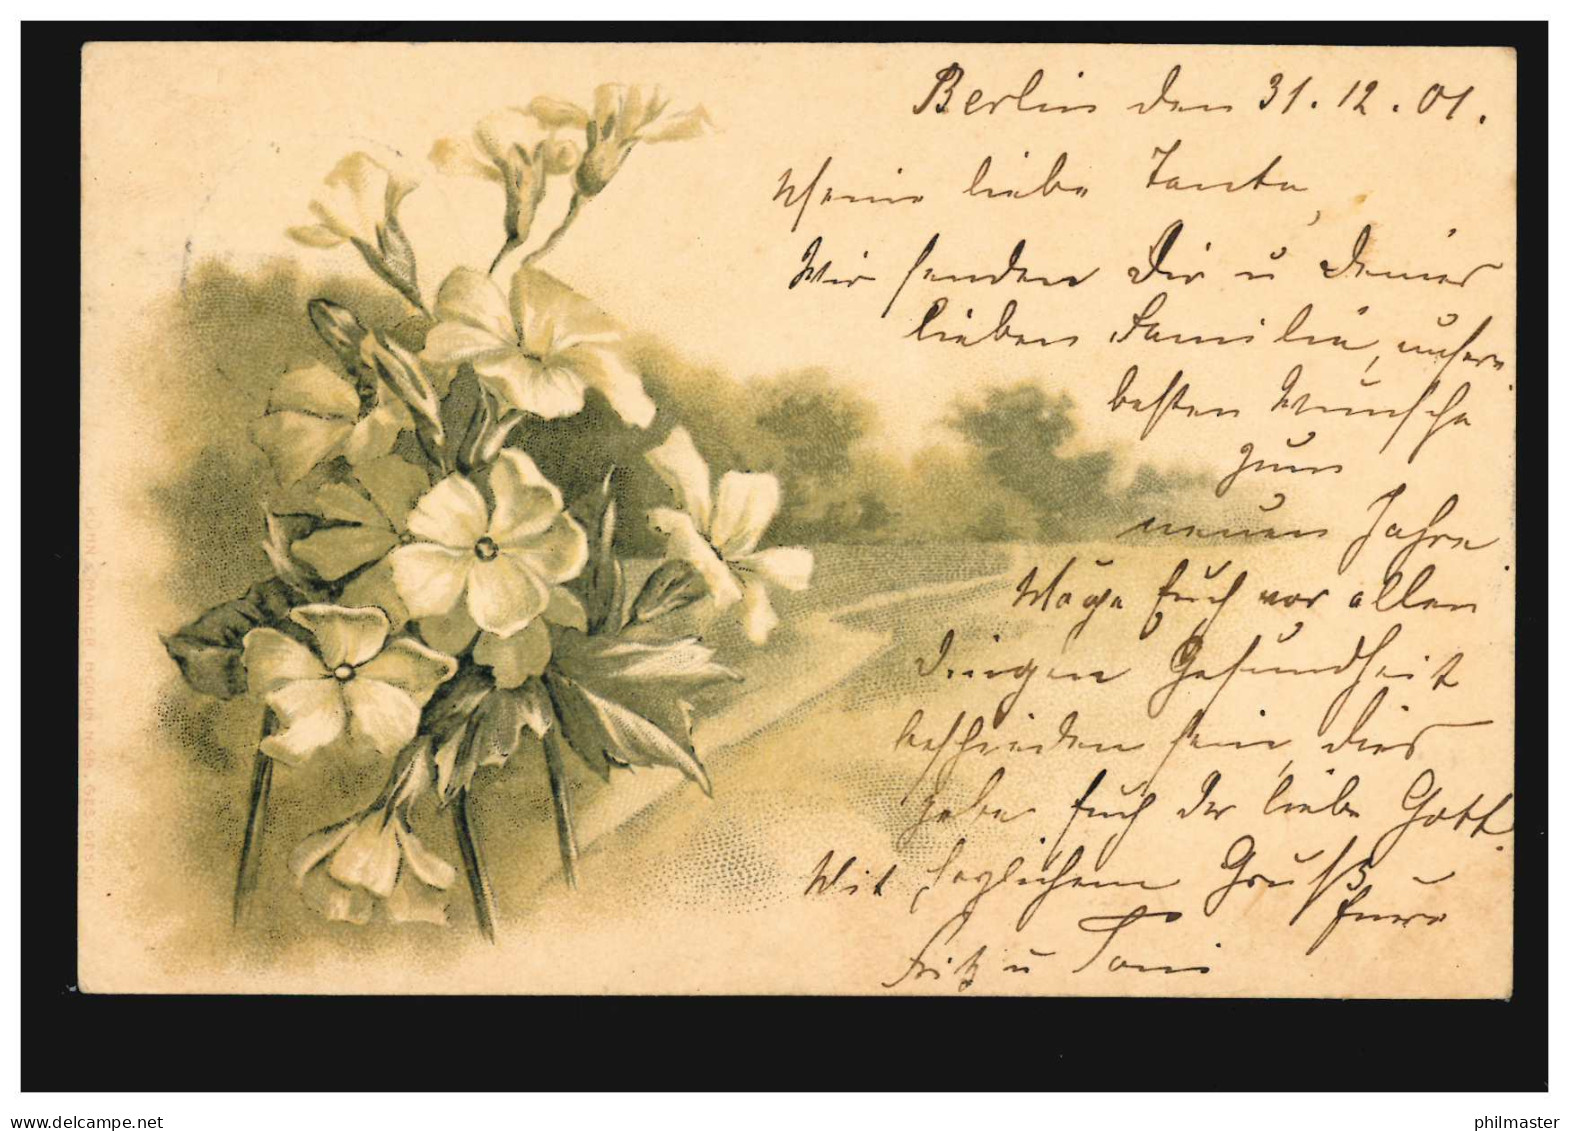 Berlin den 31.12.01.
Meine liebe Tante,
Wir senden Dir u Deiner
lieben Familie, unsere
besten Wünsche
zum
neuen Jahre
Möge Euch vor allen
Dingen Gesundheit
beschieden sein, dies
gebe Euch der liebe Gott.
Mit herzlichem Gruß
Eure
Fritz u Toni
www.delcampe.net
philmaster